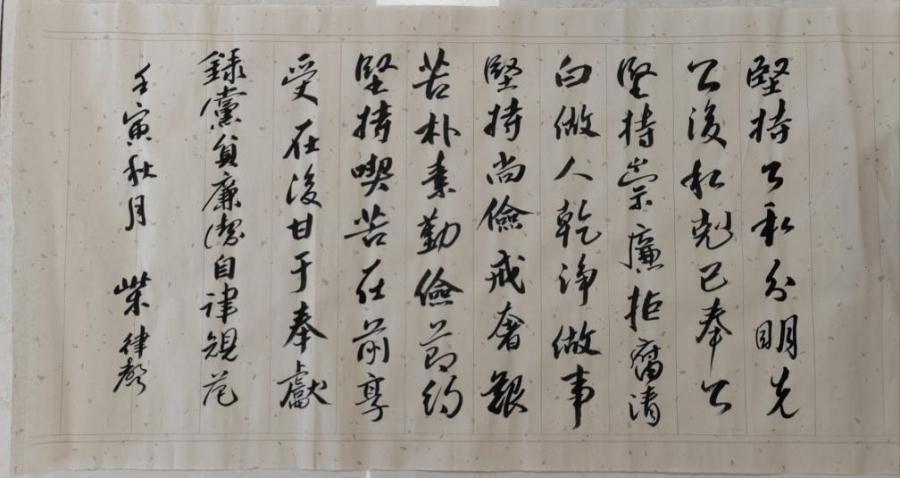 堅持公私分明先
公後私剋己奉公
堅持崇廉拒腐清
白做人乾淨做事
堅持尚儉戒奢艱
苦朴素勤儉节约
堅持喫苦在前享
受在後甘于奉獻
録黨員廉潔自律規范
壬寅秋月 柴律聲